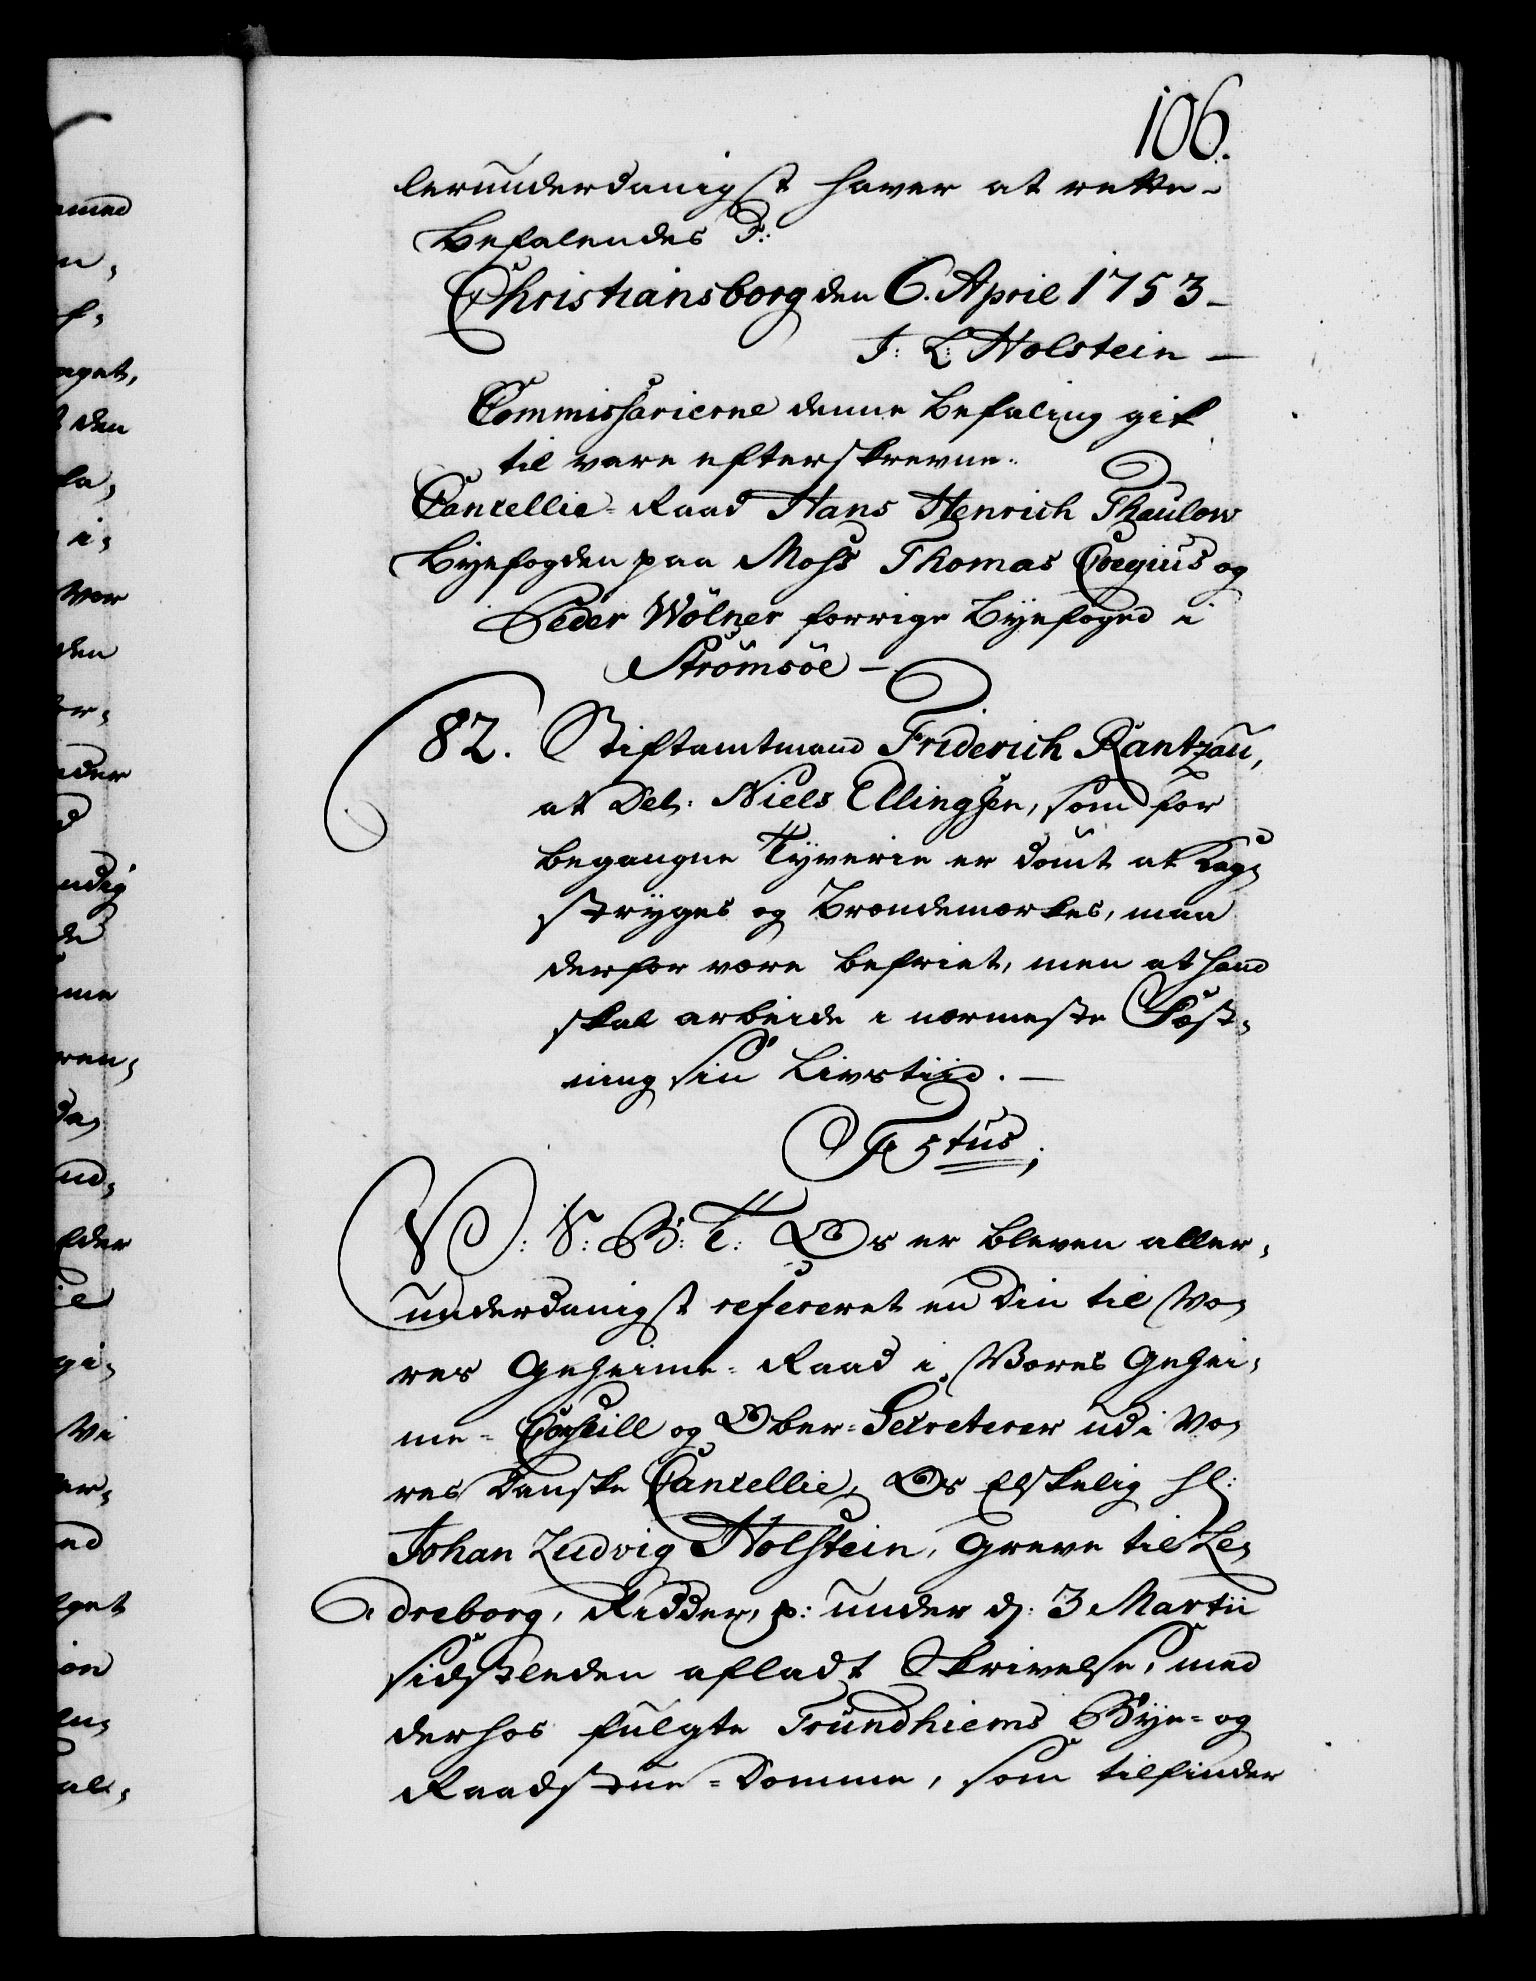 106.
lerunderdanigst haver at rette.
Befalendes P:
Christiansborg den 6. April 1753
J: L: Holstein
Commissarierne denne Befaling gik
til vare efterskrevne.
Cancellie-Raad Hans Henrich Thaulow
Byefogden paa Moss Thomas Coegius og
Peder Wölner forrige Byefoged i
Strömsöe
82. Stiftamtmand Friderich Rantzau,
at Del: Niels Ellingsen, som for
begangne Tyverie er dömt at Kag-
stryges og Brændemærkes, maa
derfor være befriet, men at hand
skal arbeide i nærmeste Fæst-
ning sin Livstiid.
Festus;
V: S: B: T: Os er bleven aller-
underdanigst refereret en Din til Vo-
res Geheime-Raad i Vores Gehei-
me-Conseill og Ober-Secreterer udi Vo-
res Danske Cancellie, Os Elskelig Hr:
Johan Ludvig Holstein, Greve til Le-
dreborg, Ridder, p: under d: 3 Martii
sidstleden afladt Skrivelse, med
derhos fulgte Trundhiems Bye- og
Raadstue-Domme, som tilfinder
med
den
Vor
den